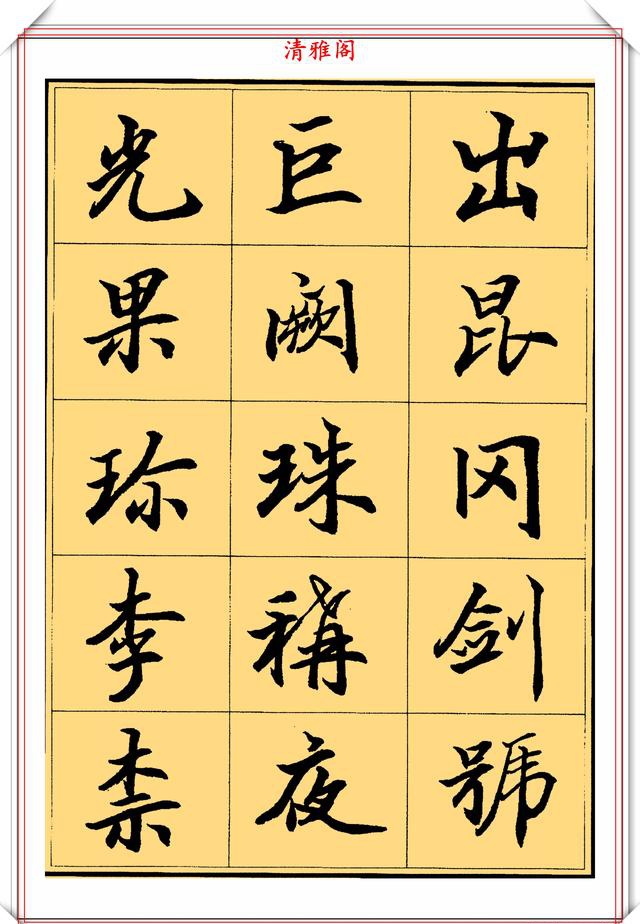 清雅阁
出昆冈剑號
巨阙珠稱夜
光果珎李柰